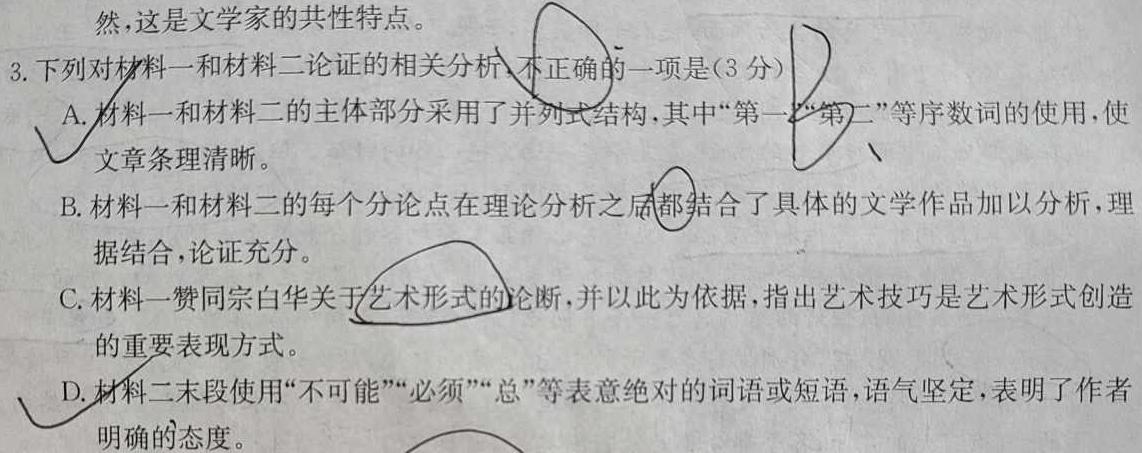 然,这是文学家的共性特点。
3.下列对材料一和材料二论证的相关分析,不正确的一项是(3分) B
A.材料一和材料二的主体部分采用了并列式结构,其中“第一”“第二”等序数词的使用,使
文章条理清晰。
B.材料一和材料二的每个分论点在理论分析之后都结合了具体的文学作品加以分析,理
据结合,论证充分。
C.材料一赞同宗白华关于艺术形式的论断,并以此为依据,指出艺术技巧是艺术形式创造
的重要表现方式。
D.材料二末段使用“不可能”“必须”“总”等表意绝对的词语或短语,语气坚定,表明了作者
明确的态度。